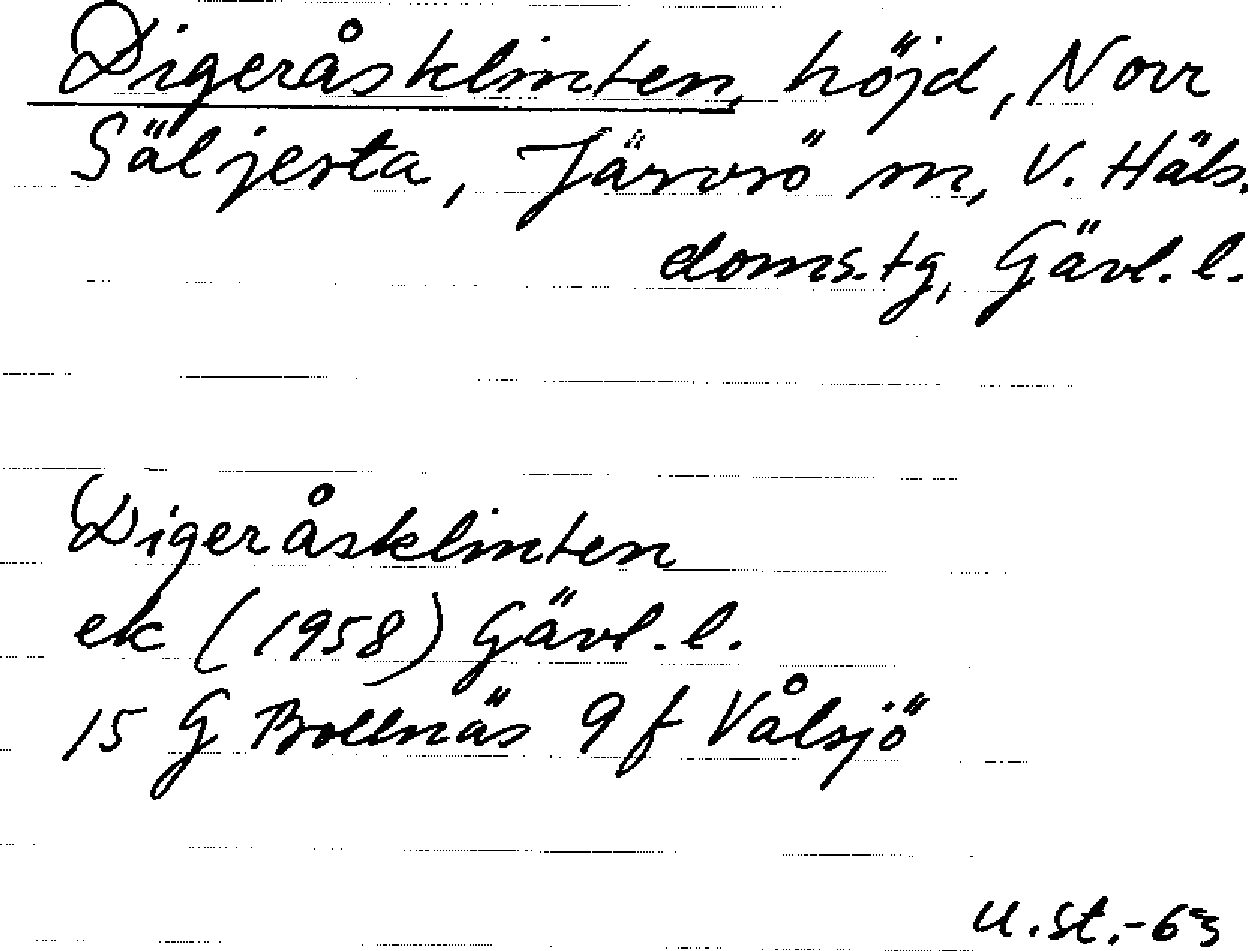 Digeråsklinten, höjd, Norr
Säljesta, Järvsö sn, V. Häls.
doms.tg, Gävl. l.
Digeråsklinten
ek (1958) Gävl. l.
15 G Bollnäs 9 f Vålsjö
u.st.-63